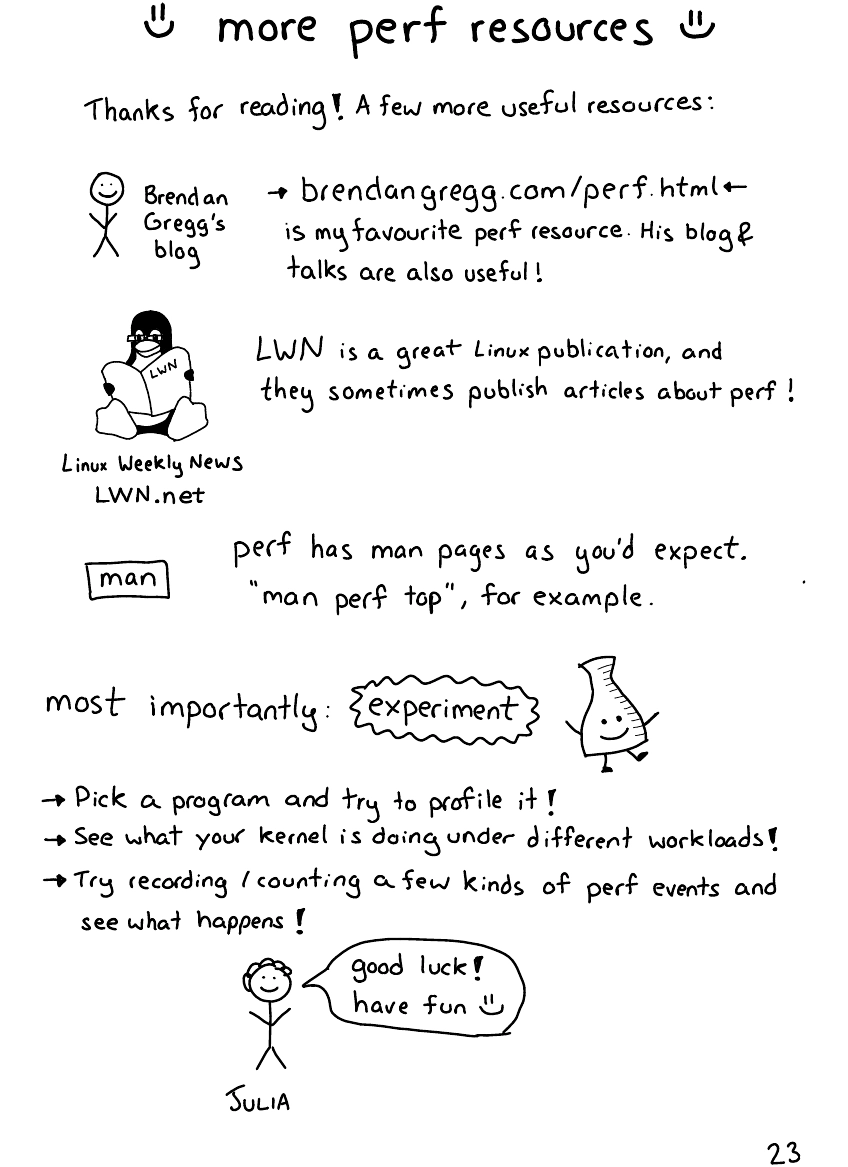 more perf resources
Thanks for reading! A few more useful resources:
Brendan
Gregg's
blog
→ brendangregg.com/perf.html ←
is my favourite perf resource. His blog &
talks are also useful!
LWN
Linux Weekly News
LWN.net
LWN is a great Linux publication, and
they sometimes publish articles about perf!
man
perf has man pages as you'd expect.
"man perf top", for example.
most importantly: experiment
→ Pick a program and try to profile it!
→ See what your kernel is doing under different workloads!
→ Try recording / counting a few kinds of perf events and
see what happens!
good luck!
have fun
JULIA
23